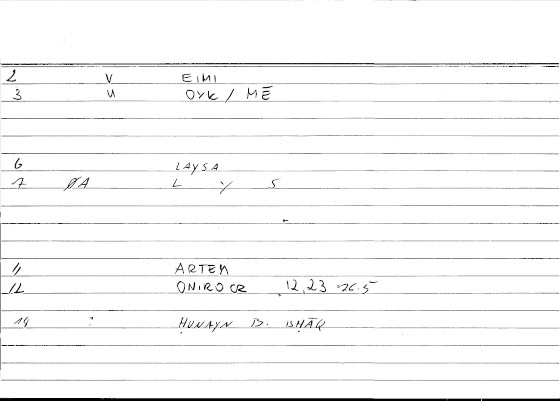 2 V EIMI
3 U OYK / MĒ
6 LAYSA
7 ØA L Y S
11 ARTEM
12 ONIROCR 12,23 = 26.5
14 : ḤUNAYN B. ISḤĀQ